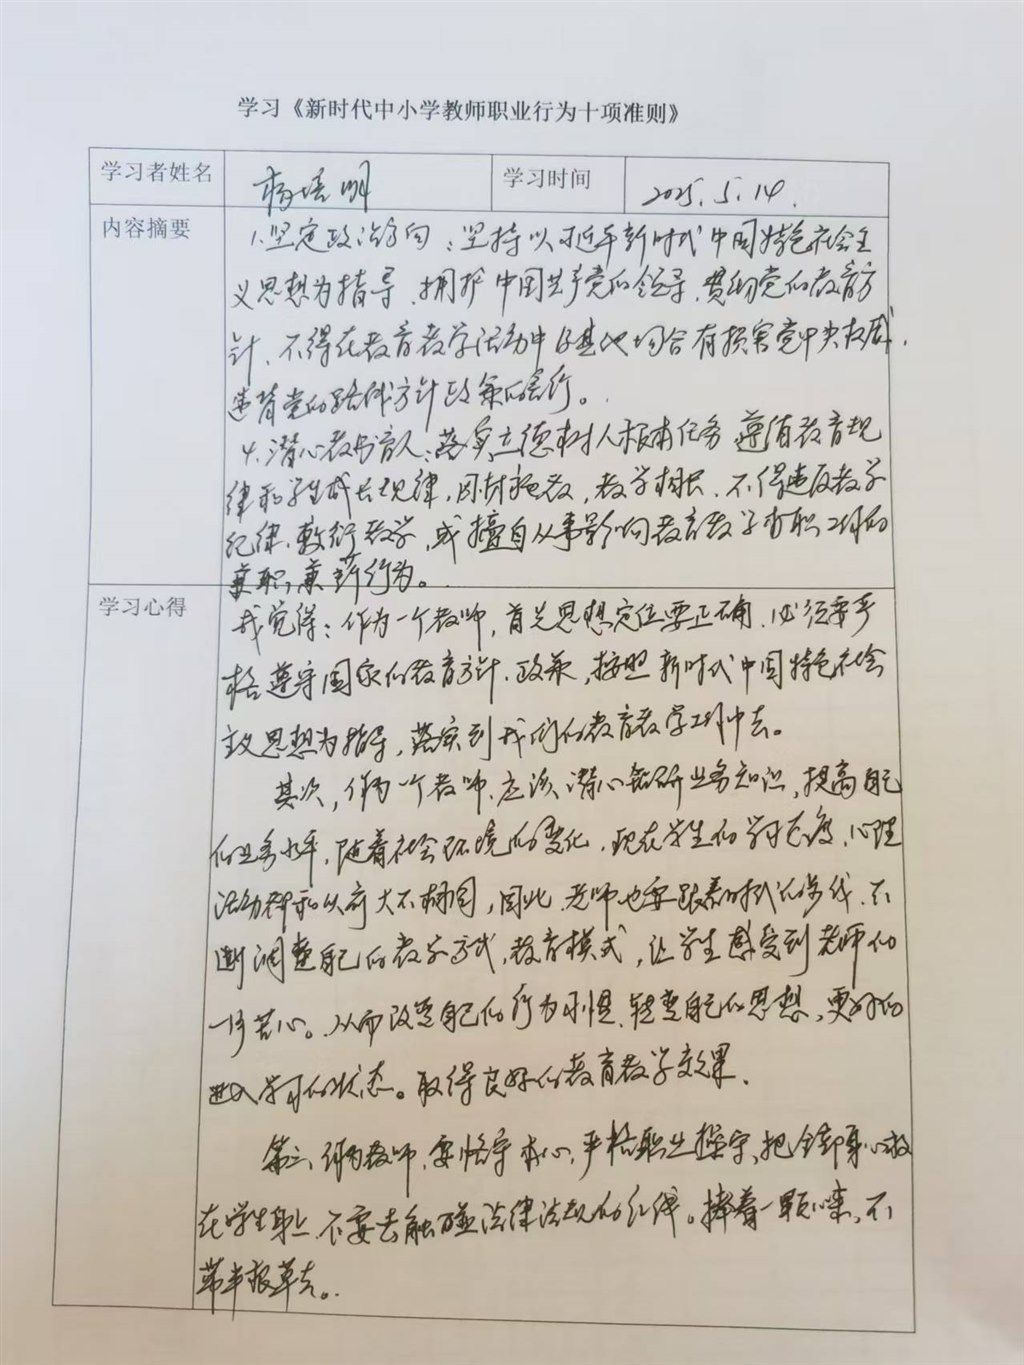 学习《新时代中小学教师职业行为十项准则》
学习者姓名 杨 明 学习时间 2025.5.14.
内容摘要
1.坚定政治方向：坚持以习近平新时代中国特色社会主
义思想为指导、拥护中国共产党的领导、贯彻党的教育方
针、不得在教育教学活动中及其他场合有损害党中央权威、
违背党的路线方针政策的言行。
4.潜心教书育人：落实立德树人根本任务 遵循教育规
律和学生成长规律，因材施教，教学相长、不得违反教学
纪律、敷衍教学，或擅自从事影响教育教学本职工作的
兼职、兼薪行为。
学习心得
我觉得：作为一个教师，首先思想定位要正确、必须要严
格遵守国家的教育方针、政策，按照新时代中国特色社会
主义思想为指导，落实到我们的教育教学工作中去。
其次，作为一个教师、应该潜心钻研业务知识，提高自己
的业务水平，随着社会环境的变化，现在学生的学习态度、心理
活动都和以前大不相同，因此、老师也要跟着时代的步伐、不
断调整自己的教学方式，教育模式，让学生感受到老师的
一片苦心。从而改变自己的行为习惯、转变自己的思想，更好的
进入学习的状态。取得良好的教育教学效果、
第三、作为教师、要恪守本心、严格职业操守、把全部身心放
在学生身上、不要去触碰法律法规的红线。捧着一颗心来、不
带半根草去。